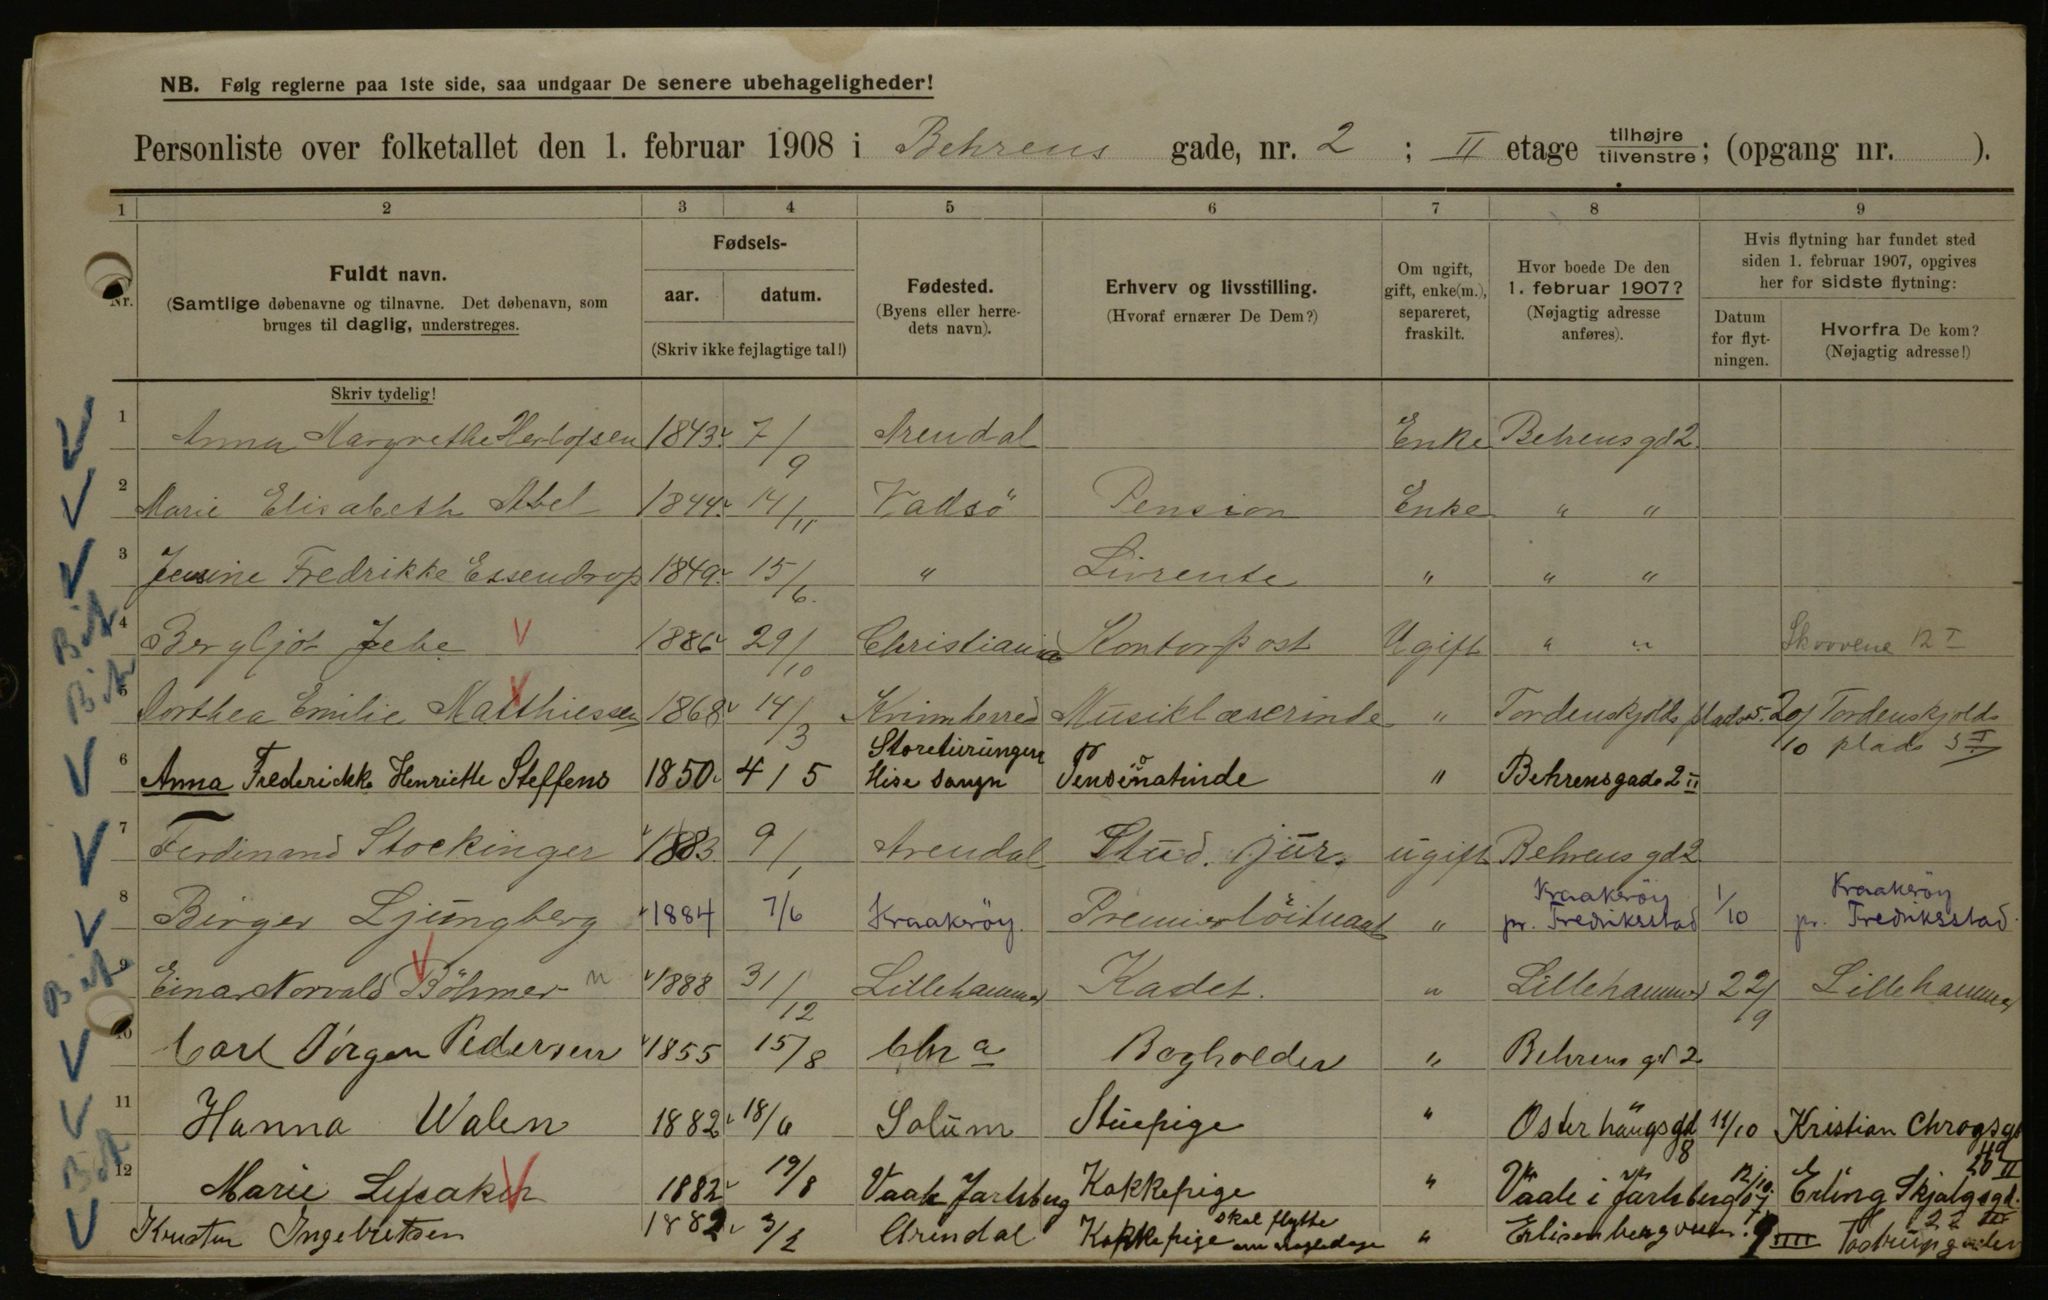 NB. Følg reglerne paa 1ste side, saa undgaar De senere ubehageligheder!
Personliste over folketallet den 1. februar 1908 i Behrens gade, nr. 2 ; II etage tilhøjre tilvenstre; (opgang nr. ).
1 2 3 4 5 6 7 8 9
Nr.
Fuldt navn.
(Samtlige døbenavne og tilnavne. Det døbenavn, som
bruges til daglig, understreges.
Skriv tydelig!
Fødsels-
aar. datum.
(Skriv ikke fejlagtige tal!)
Fødested.
(Byens eller herre-
dets navn).
Erhverv og livsstilling.
(Hvoraf ernærer De Dem?)
Om ugift,
gift, enke(m.),
separeret,
fraskilt.
Hvor boede De den
1. februar 1907?
(Nøjagtig adresse
anføres).
Hvis flytning har fundet sted
siden 1. februar 1907, opgives
her for sidste flytning:
Datum
for flyt-
ningen.
Hvorfra De kom?
(Nøjagtig adresse!)
1 Anna Margrethe Herlofsen 1843 7/9 Arendal Enke Behrens gd 2
2 Marie Elisabeth Abel 1844 14/11 Vadsö Pension Enke " "
3 Jensine Fredrikke Essendrop 1849 15/6 " Livrente " " "
4 Bergljot Jebe 1886 29/10 Christiania Kontorpost Ugift " " 12 I
5 Dorthea Emilie Matthiessen 1868 14/3 Kvinnherred Musiklæserinde " Tordenskjolds plads 5. 20/10 Tordenskjolds
plads 5 I
6 Anna Frederikke Henriette Steffens 1850 4/5 Hise sogn " Behrensgade 2 II
7 Ferdinand Stockinger 1883 9/1 Arendal Stud. jur. ugift Behrens gd 2
8 Birger Ljungberg 1884 7/6 Kraakeröy Premierlöitnant " Kraakeröy
pr. Fredriksstad 1/10 Kraakeröy
pr. Fredriksstad.
9 Einar Norvald Böhmer 1888 31/12 Lillehammer Kadet. " Lillehammer 22/9 Lillehammer
10 Carl Jörgen Pedersen 1855 15/8 Chr a Bogholder " Behrens gd 2
11 Hanna Walen 1882 18/6 Solum Stuepige " Osterhausgd 8 11/10 Kristian
12 Marie Lysaker 1882 19/8 Vaale Jarlsberg Kokkepige " Vaale i Jarlsberg 12/10 07 Erling Skjalgsgd.
Ingebretsen 1882 3/2 Arendal Kokkepige skal flytte "